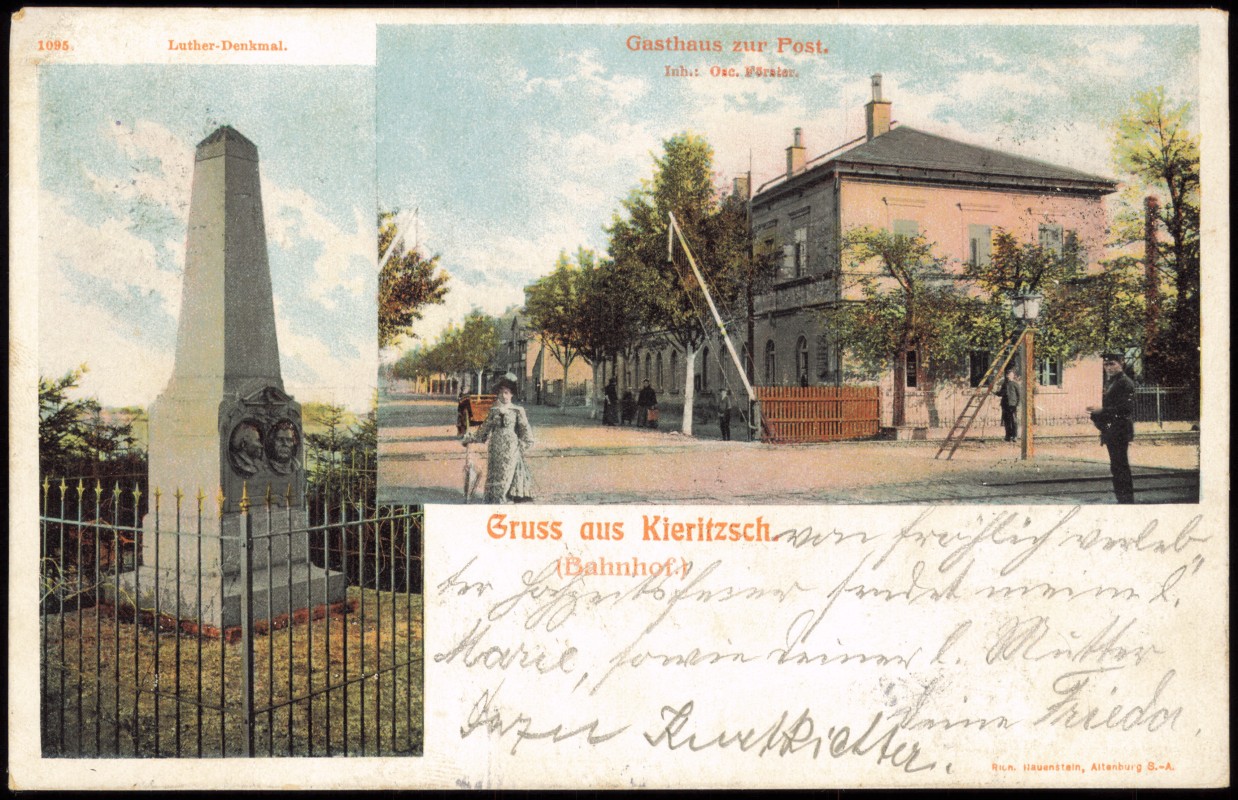 1095.
Luther-Denkmal.
Gasthaus zur Post.
Inh.: Osc. Förster.
Gruss aus Kieritzsch.
(Bahnhof.)
von fröhlich verleb-
ter Hochzeitsfeier sendet meine l.
Marie, sowie Deiner l. Mutter
Deine Frieda.
Kurt Richter.
Rich. Hauenstein, Altenburg S.-A.